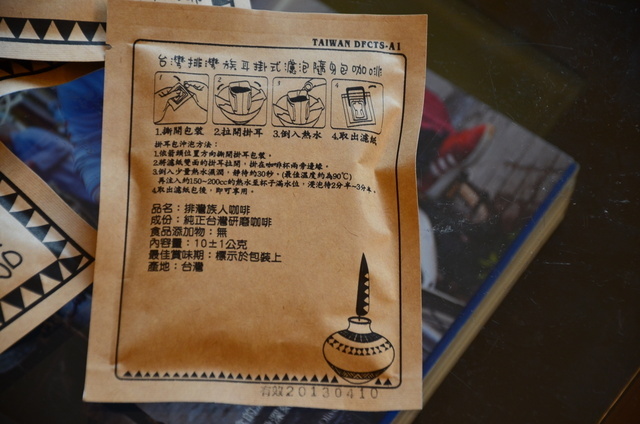 TAIWAN DFCTS-A1
台灣排灣族耳掛式濾泡隨身包咖啡
1.撕開包裝 2.拉開掛耳 3.倒入熱水 4.取出濾紙
掛耳包沖泡方法：
1.依箭頭位置方向撕開掛耳包裝。
2.將濾紙雙面的掛耳拉開，掛在咖啡杯兩旁邊緣。
3.倒入少量熱水濕潤，靜待約30秒。(最佳溫度約為90℃)
再注入約150~200cc的熱水至杯子滿水位，浸泡待2分半~3分。
4.取出濾紙包後，即可享用。
品名：排灣族人咖啡
成份：純正台灣研磨咖啡
食品添加物：無
內容量：10±1公克
最佳賞味期：標示於包裝上
產地：台灣
有效20130410